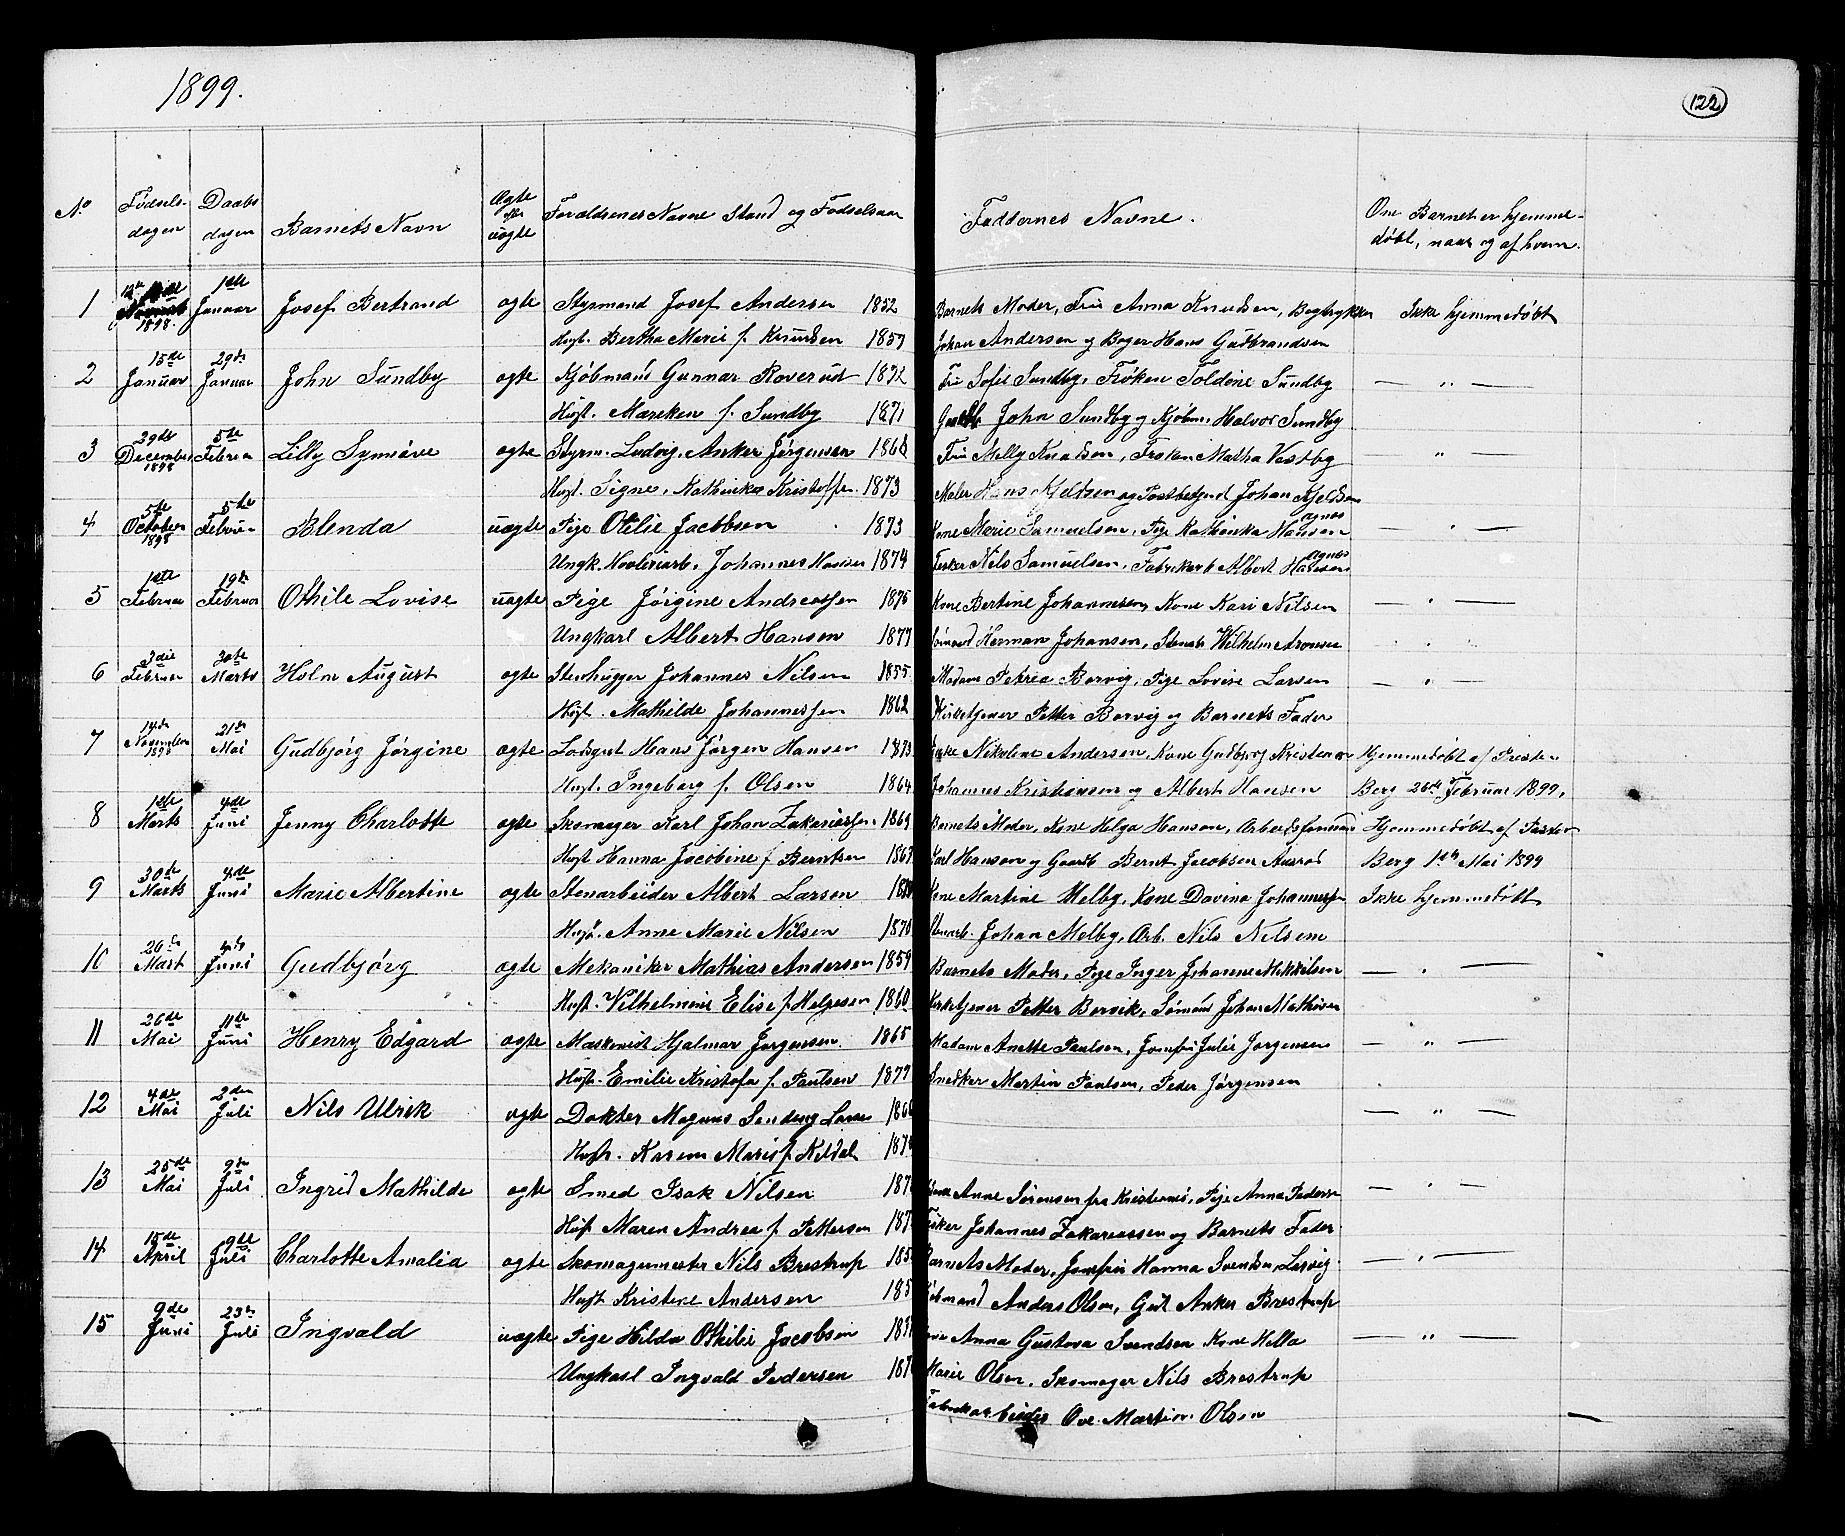 1899.
122
No Fødsels- dagen Daabs dagen Barnets Navn Ægte eller uægte Forældrenes Navne Stand og Fødselsaar Faddernes Navne. Om Barnet er hjemme-
døbt, naar og af hvem.
1 1898. 1ste Januar Josef Bertrand ægte Styrmand Josef Andersen 1852 Barnets Moder, Fru Anna Knudsen, Bogtrykker Ikke hjemmedøbt
Hust. Bertha Marie f. Knudsen 1859 Johan Andersen og Bager Hans Gudbrandsen
2 15de Januar 29de Januar John Sundby ægte Kjøbmand Gunnar Roverud 1872 Fru Sofie Sundby, Frøken Toldine Sundby — „ —
Hust. Mareken f. Sundby 1871 John Sundby og Kjøbm. Halvor Sundby
3 29de December 1898 5te Februar Lilly Synnøve ægte Styrm. Ludvig Anker Jørgensen Fru Melly Knudsen, Frøken Matha Vestby — „ —
Hust. Signe, Kathinka Kristoffsen. 1873 Maler Hans Kjeldsen og Postbetjent Johan Kjeldsen
4 5te October 1898 5te Februar Blenda uægte Pige Otilie Jacobsen 1873 Kone Marie Samuelsen, Pige Kathinka Hansen Agnes — „ —
Ungk. Høvleriarb. Johannes Hansen 1874 Fisker Nils Samuelsen, Fabrikarb Albert Hansen Agnes
5 1ste Februar 19de Februar Othile Lovise uægte Pige Jørgine Andreassen 1875 Kone Bertine Johannesen, Kone Kari Nilsen — „ —
Ungkarl Albert Hansen 1877 Sømand Herman Johansen, Stenarb Wilhelm Aronsen
6 3die Februar 30te Marts Holm August ægte Stenhugger Johannes Nilsen 1855 Madam Petrea Borvig, Pige Lovise Larsen — „ —
Hust. Mathilde Johannessen 1862 Kirketjener Petter Borvig og Barnets Fader
7 14de November 1898 21de Mai Gudbjørg Jørgine ægte Hans Jørgen Hansen 1873 Nikoline Andersen, Kone Gudbjørg Kristensen Hjemmedøbt af Presten
Hust. Ingeborg f. Olsen 1864 Johannes Kristiansen og Albert Hansen Berg 26de Februar 1899.
8 1ste Marts 4de Juni Jenny Charlotte ægte Skomager Karl Johan Zakariassen 1869 Barnets Moder, Kone Helga Hanson, Arbeidsformand Hjemmedøbt af Pastor
Hust Hanna Jacobine f Berntsen 1869 Karl Hanson og Gaardb Bernt Jacobsen Aurød Berg 1ste Mai 1899
9 30te Marts 4de Juni Marie Albertine ægte Stenarbeider Albert Larsen Kone Martine Melby, Kone Davina Johannessen Ikke hjemmedøbt
Hust. Anne Marie Nilsen 1870 Stenarb. Johan Melby, Arb. Nils Nilsen
10 26de Mart 4de Juni Gudbjørg ægte Mekaniker Mathias Andersen 1859 Barnets Moder, Pige Inger Johanne Mikkelsen — „ —
Hust. Vilhelmine Elise f. Helgesen 1860 Kirketjener Petter Borvik, Sømand Johan Mathisen
11 26de Mai 11te Juni Henry Edgard ægte Maskinist Hjalmar Jørgensen. 1865 Madam Anette Paulsen, Jomfru Julie Jørgensen — „ —
Hust. Emilie Kristofa f. Paulsen 1877 Snedker Martin Paulsen, Peder Jørgensen
12 4de Mai 2den Juli Nils Ulrik ægte Doktor Magnus Sendeng Larsen — „ —
Hust. Karen Marie f. Keldal
13 25de Mai 9de Juli Ingrid Mathilde ægte Smed Isak Nilsen 187 Anne Sørensen fra Kristernes, Pige Anna Pedersen — „ —
Hust Maren Andrea f. Pettersen 187 Fisker Johannes Zakariassen og Barnets Fader
14 15de April 9de Juli Charlotte Amalia ægte Skomagermester Nils Brestrup 185 Barnets Moder, Jomfru Hanna Svendsen Larvig — „ —
Hust Kristine Andersen 185 Kjøbmand Anders Olsen, Gut Anker Brestrup
15 9de Juni 23de Juli Ingvald uægte Pige Hilda Othilie Jacobsen 187 Kone Anna Gustava Svendsen Kone Hella — „ —
Ungkarl Ingvald Pedersen 187 Marie Olsen, Skomager Nils Brestrup
Fabrikarbeider Ove Martin Olsen